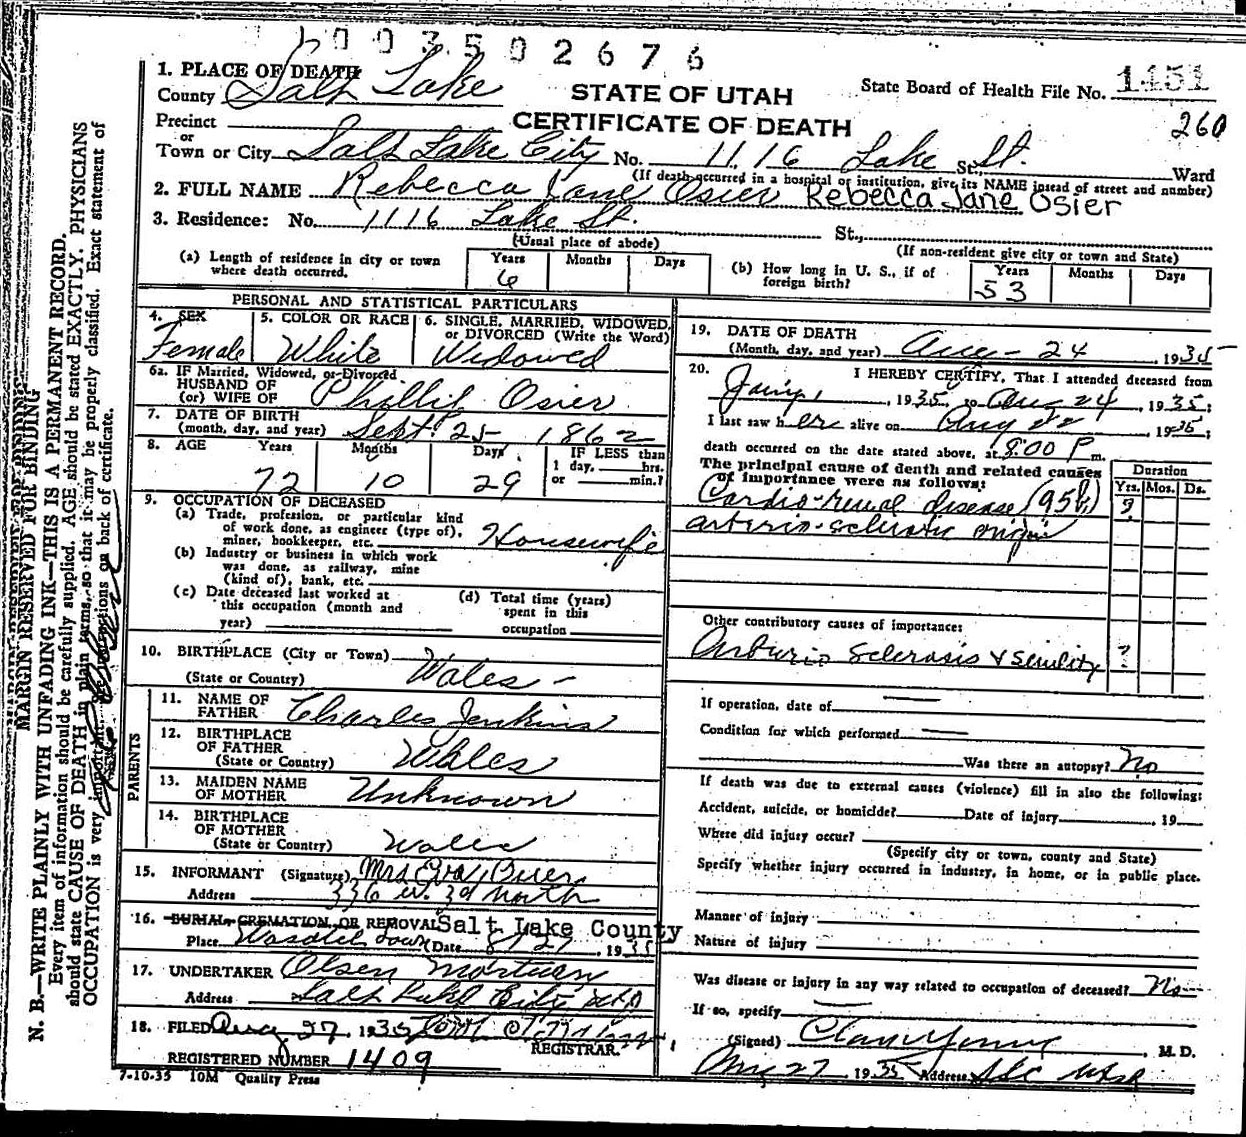 1003502676
1. PLACE OF DEATH
County Salt Lake
STATE OF UTAH
State Board of Health File No. 1451
CERTIFICATE OF DEATH
260
Precinct
or
Town or City Salt Lake City No. 1116 Lake St. St. Ward
(If death occurred in a hospital or institution, give its NAME insead of street and number)
2. FULL NAME Rebecca Jane Osier Rebecca Jane Osier
3. Residence: No. 1116 Lake St. St.,
(Usual place of abode) (If non-resident give city or town and State)
(a) Length of residence in city or town where death occurred. Years 6 Months Days
(b) How long in U. S., if of foreign birth? Years 53 Months Days
PERSONAL AND STATISTICAL PARTICULARS
4. SEX Female
5. COLOR OR RACE White
6. SINGLE, MARRIED, WIDOWED, or DIVORCED (Write the Word) Widowed
6a. IF Married, Widowed, or Divorced
HUSBAND OF
(or) WIFE OF Phillip Osier
7. DATE OF BIRTH
(month, day, and year) Sept. 25 1862
8. AGE Years 72 Months 10 Days 29
IF LESS than
1 day, hrs.
or min.?
9. OCCUPATION OF DECEASED
(a) Trade, profession, or particular kind
of work done, as engineer (type of),
miner, bookkeeper, etc. Housewife
(b) Industry or business in which work
was done, as railway, mine
(kind of), bank, etc.
(c) Date deceased last worked at
this occupation (month and
year)
(d) Total time (years)
spent in this
occupation
10. BIRTHPLACE (City or Town)
(State or Country) Wales -
PARENTS
11. NAME OF
FATHER Charles Jenkins
12. BIRTHPLACE
OF FATHER
(State or Country) Wales
13. MAIDEN NAME
OF MOTHER Unknown
14. BIRTHPLACE
OF MOTHER
(State or Country) Wales
15. INFORMANT (Signature) Mrs Eva
Address 336 W. 3d North
16. BURIAL, CREMATION, OR REMOVAL Salt Lake County
Place Wasatch Lawn Date 8/27, 1935
17. UNDERTAKER Olsen Mortuary
Address Salt Lake City Utah
18. FILED Aug 27, 1935
REGISTRAR.
REGISTERED NUMBER 1409
7-10-35 10M Quality Press
19. DATE OF DEATH
(Month, day, and year) Aug - 24, 1935
20. I HEREBY CERTIFY, That I attended deceased from
, 1935, to Aug 24, 1935;
I last saw her alive on Aug 22, 1935;
death occurred on the date stated above, at 8:00 P m.
The principal cause of death and related causes
of importance were as follows:
Duration
Yrs. Mos. Ds.
Cardio-renal disease (95b)
arterio-sclerotic origin
Other contributory causes of importance:
Arterio sclerosis & senility ?
If operation, date of
Condition for which performed
Was there an autopsy? No
If death was due to external causes (violence) fill in also the following:
Accident, suicide, or homicide? Date of injury, 19
Where did injury occur?
(Specify city or town, county and State)
Specify whether injury occurred in industry, in home, or in public place.
Manner of injury
Nature of injury
Was disease or injury in any way related to occupation of deceased? No
If so, specify
(Signed) , M. D.
Aug 27, 1935 Address SLC Utah
MARGIN RESERVED FOR BINDING
N. B.—WRITE PLAINLY WITH UNFADING INK—THIS IS A PERMANENT RECORD.
Every item of information should be carefully supplied. AGE should be stated EXACTLY. PHYSICIANS
should state CAUSE OF DEATH in plain terms, so that it may be properly classified. Exact statement of
OCCUPATION is very important. See instructions on back of certificate.